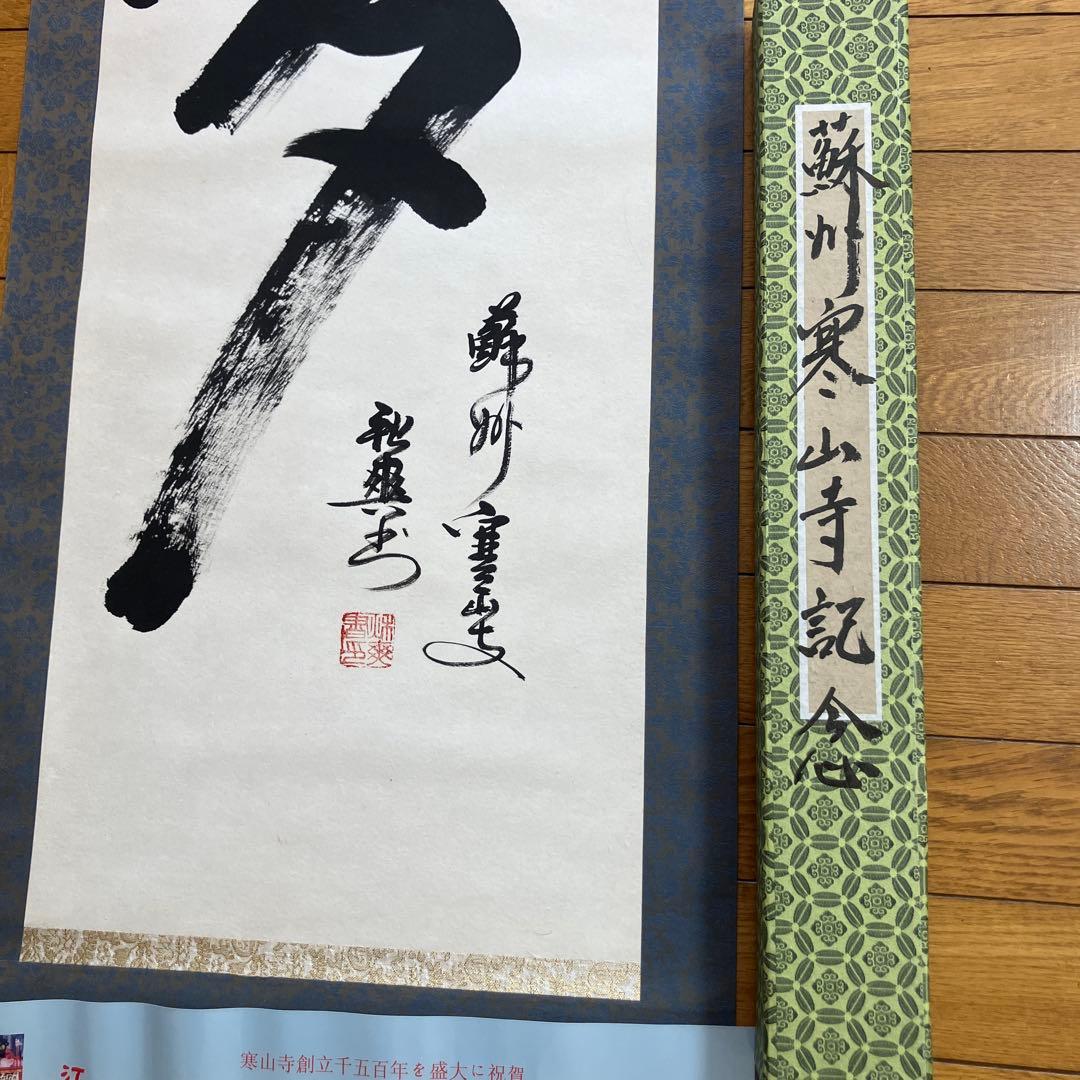 蘇州寒山寺
秋爽書
秋爽書印
蘇州寒山寺記念
寒山寺創立千五百年を盛大に祝賀
江